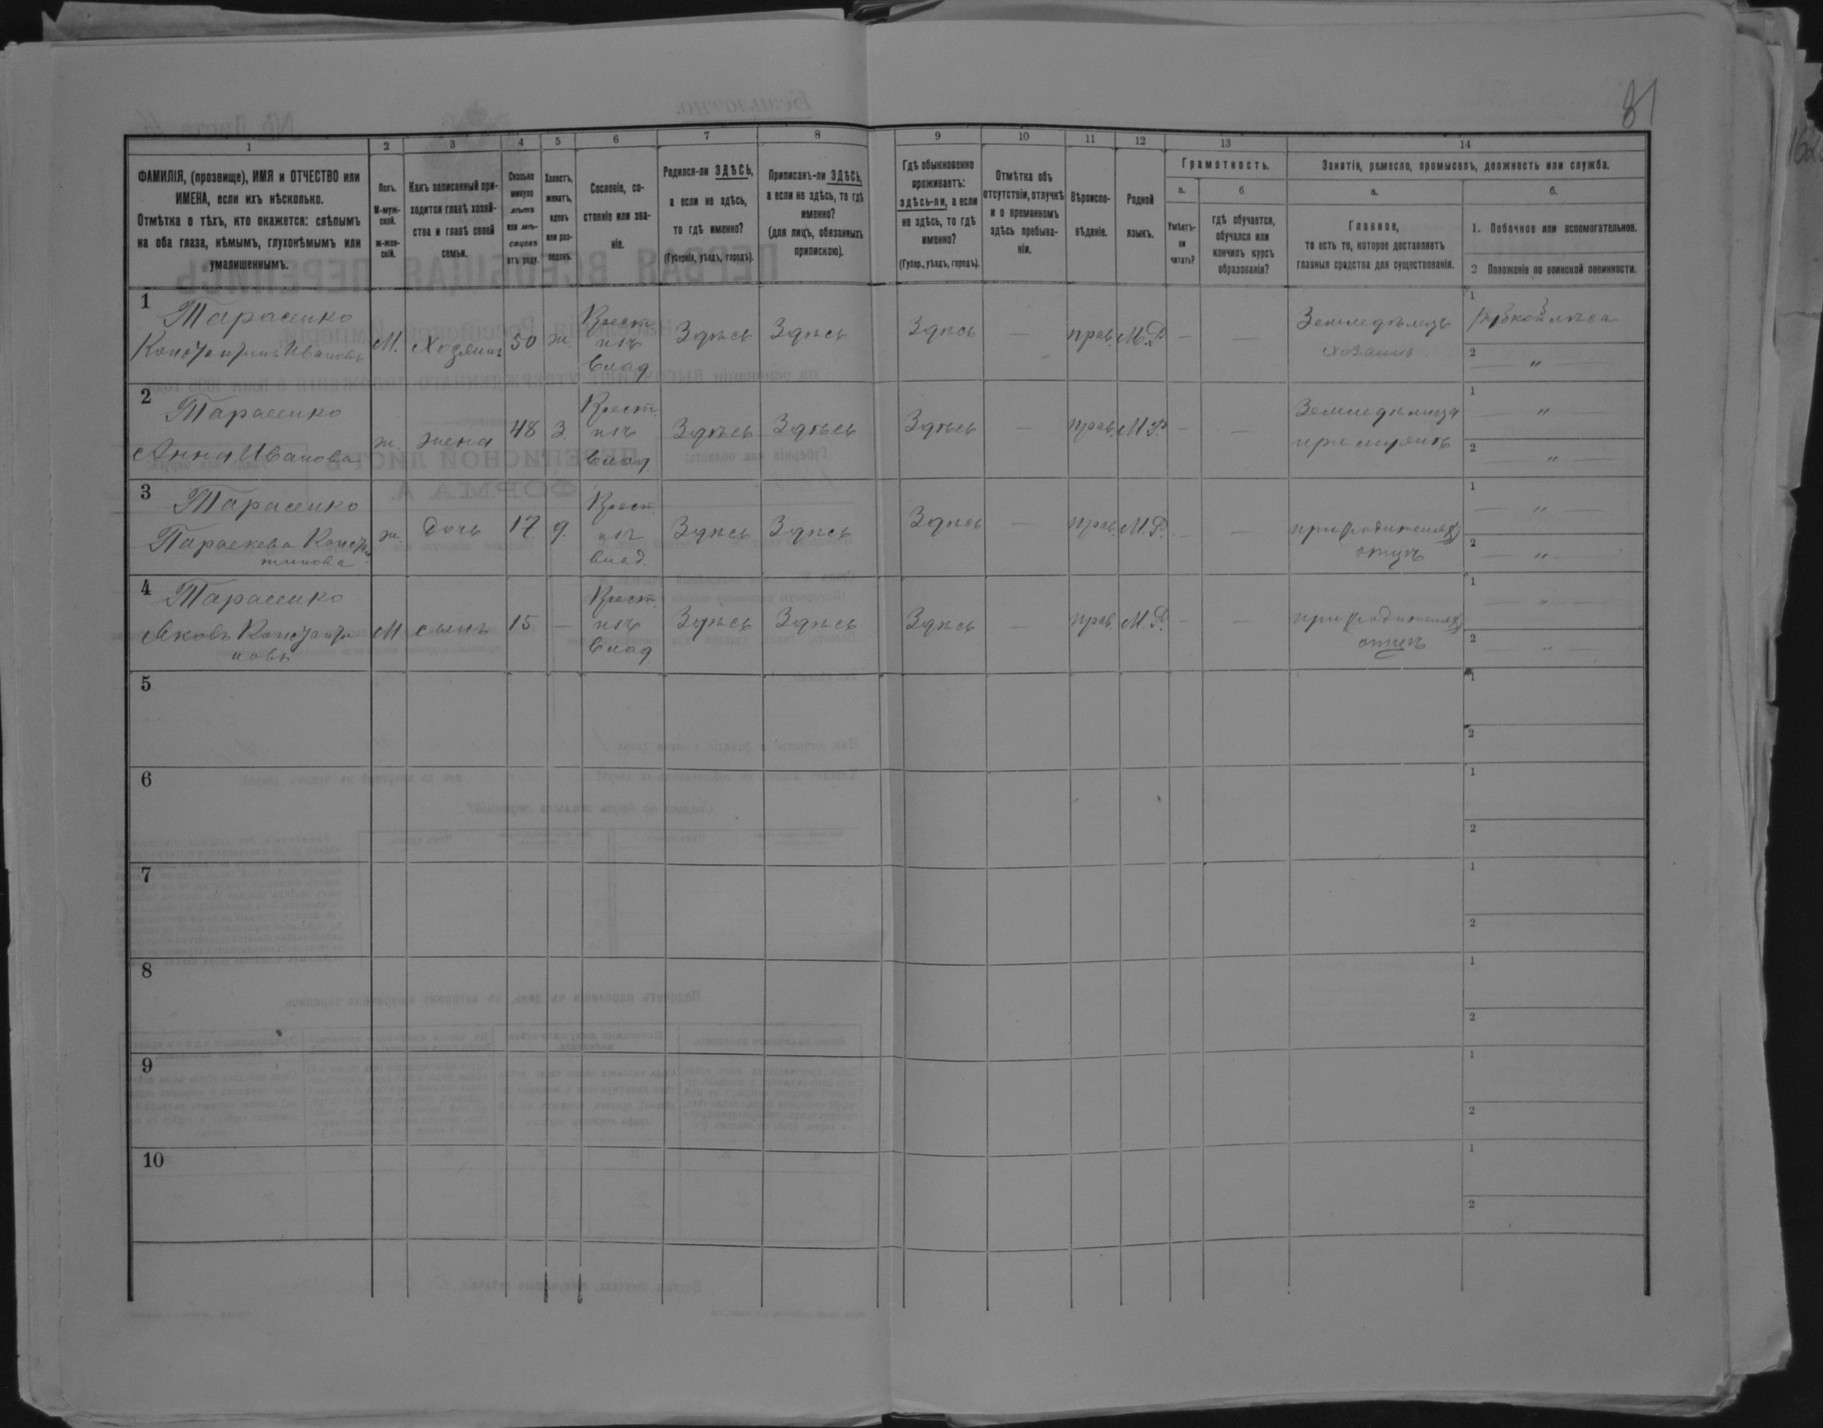 81
1
2
3
4
5
6
7
8
9
10
11
12
13
14
ФАМИЛІЯ, (прозвище), ИМЯ и ОТЧЕСТВО или
ИМЕНА, если ихъ нѣсколько.
Отмѣтка о тѣхъ, кто окажется: слѣпымъ
на оба глаза, нѣмымъ, глухонѣмымъ или
умалишеннымъ.
Полъ.
М-муж-
ской.
ж-жен-
скій.
Какъ записанный при-
ходится главѣ хозяй-
ства и главѣ своей
семьи.
Сколько
минуло
лѣтъ
или мѣ-
сяцевъ
отъ роду.
Холостъ,
женатъ,
вдовъ
или раз-
веденъ.
Сословіе, со-
стояніе или зва-
ніе.
Родился-ли ЗДѢСЬ,
а если не здѣсь,
то гдѣ именно?
(Губернія, уѣздъ, городъ).
Приписанъ-ли ЗДѢСЬ,
а если не здѣсь, то гдѣ
именно?
(для лицъ, обязанныхъ
припискою).
Гдѣ обыкновенно
проживаетъ:
здѣсь-ли, а если
не здѣсь, то гдѣ
именно?
(Губер., уѣздъ, городъ).
Отмѣтка объ
отсутствіи, отлучкѣ
и о временномъ
здѣсь пребыва-
ніи.
Вѣроиспо-
вѣданіе.
Родной
языкъ.
Грамотность.
а.
Умѣетъ-
ли
читать?
б.
гдѣ обучается,
обучался или
кончилъ курсъ
образованія?
Занятіе, ремесло, промыселъ, должность или служба.
а.
Главное,
то есть то, которое доставляетъ
главныя средства для существованія.
б.
1. Побочное или вспомогательное.
2 Положеніе по воинской повинности.
1 Тарасенко
Константинъ Ивановъ М. Хозяинъ 50 ж. Крест. изъ влад. Здѣсь Здѣсь Здѣсь — прав. М.Р. — — Земледѣлецъ хозяинъ
1
2 "
2 Тарасенко
Анна Иванова ж. жена 48 З. Крест. изъ влад. Здѣсь Здѣсь Здѣсь — прав. М.Р. — — Земледѣлица при мужѣ
1 "
2 "
3 Тарасенко
Параскева Констан
тинова ж. дочь 17 д. Крест. изъ влад. Здѣсь Здѣсь Здѣсь — прав. М.Р. — — при (родителях) отцѣ
1 "
2 "
4 Тарасенко
Яковъ Констант
новъ М сынъ 15 — Крест. изъ влад Здѣсь Здѣсь Здѣсь — прав. М.Р. — — при (родителях) отцѣ
1 "
2 "
5
1
2
6
1
2
7
1
2
8
1
2
9
1
2
10
1
2